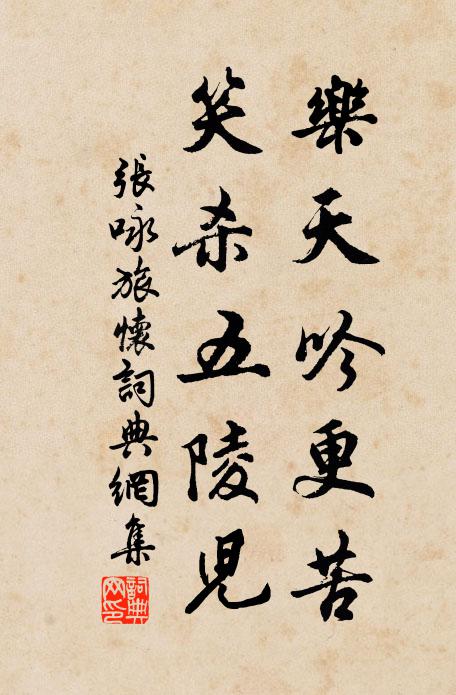 樂天吟更苦
笑杀五陵兒
張咏旅懷詞典網集
詞典網印